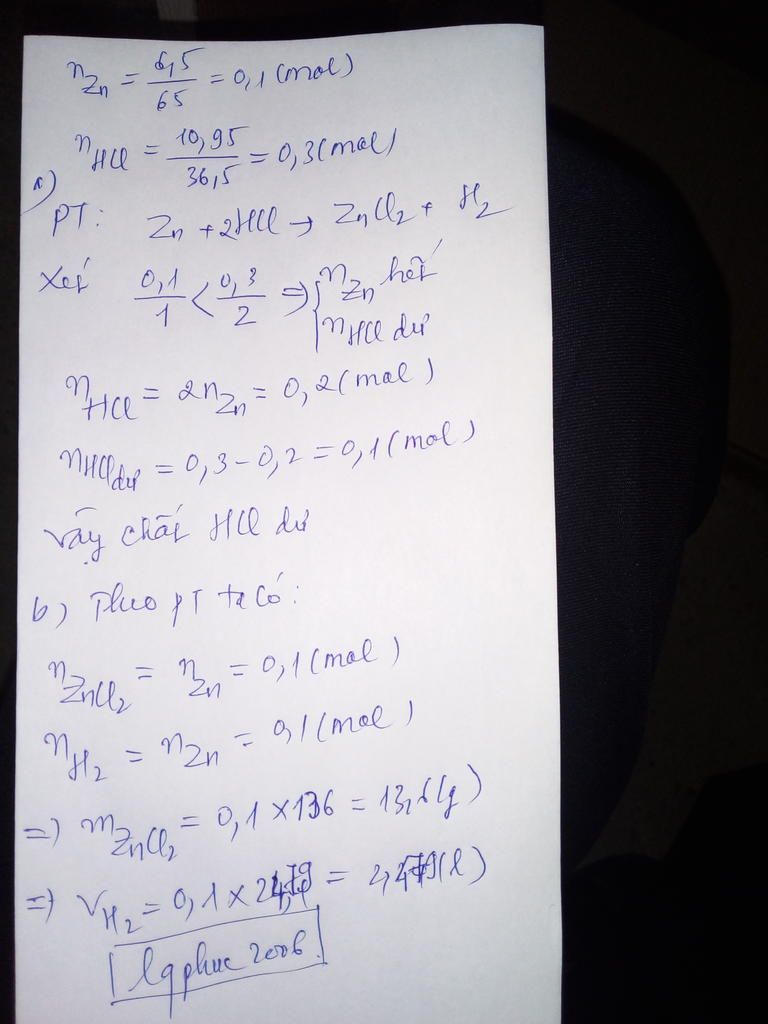 nZn = 6,5/65 = 0,1 (mol)
nHCl = 10,95/36,5 = 0,3 (mol)
a)
PT: Zn + 2HCl → ZnCl2 + H2
Xét 0,1/1 < 0,3/2 ⇒ { nZn hết
nHCl dư
nHCl = 2nZn = 0,2 (mol)
nHCl dư = 0,3 - 0,2 = 0,1 (mol)
Vậy chất HCl dư
b) Theo pT ta có:
nZnCl2 = nZn = 0,1 (mol)
nH2 = nZn = 0,1 (mol)
=) mZnCl2 = 0,1 x 136 = 13,6 (g)
=) VH2 = 0,1 x 24,79 = 2,479 (l)
lqphuc 2006